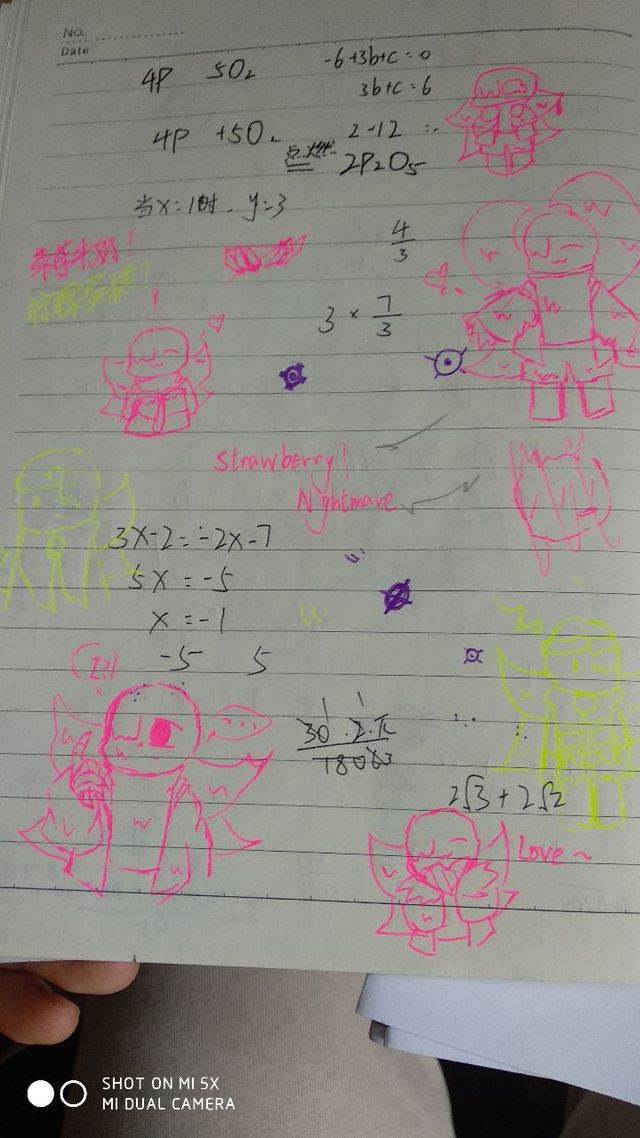 No.
Date
4P 5O₂
-6+3b+c=0
3b+c=6
4P +5O₂
点燃
2-12 =-
2P₂O₅
当x=1时、y=3
4/3
草莓牛奶!
3 × 7/3
Strawberry!
Nightmare
3x-2=-2x-7
5x=-5
x=-1
-5 5
(I?!)
....
30·2·π/180 63
1 1
2√3+2√2
Love~
SHOT ON MI 5X
MI DUAL CAMERA